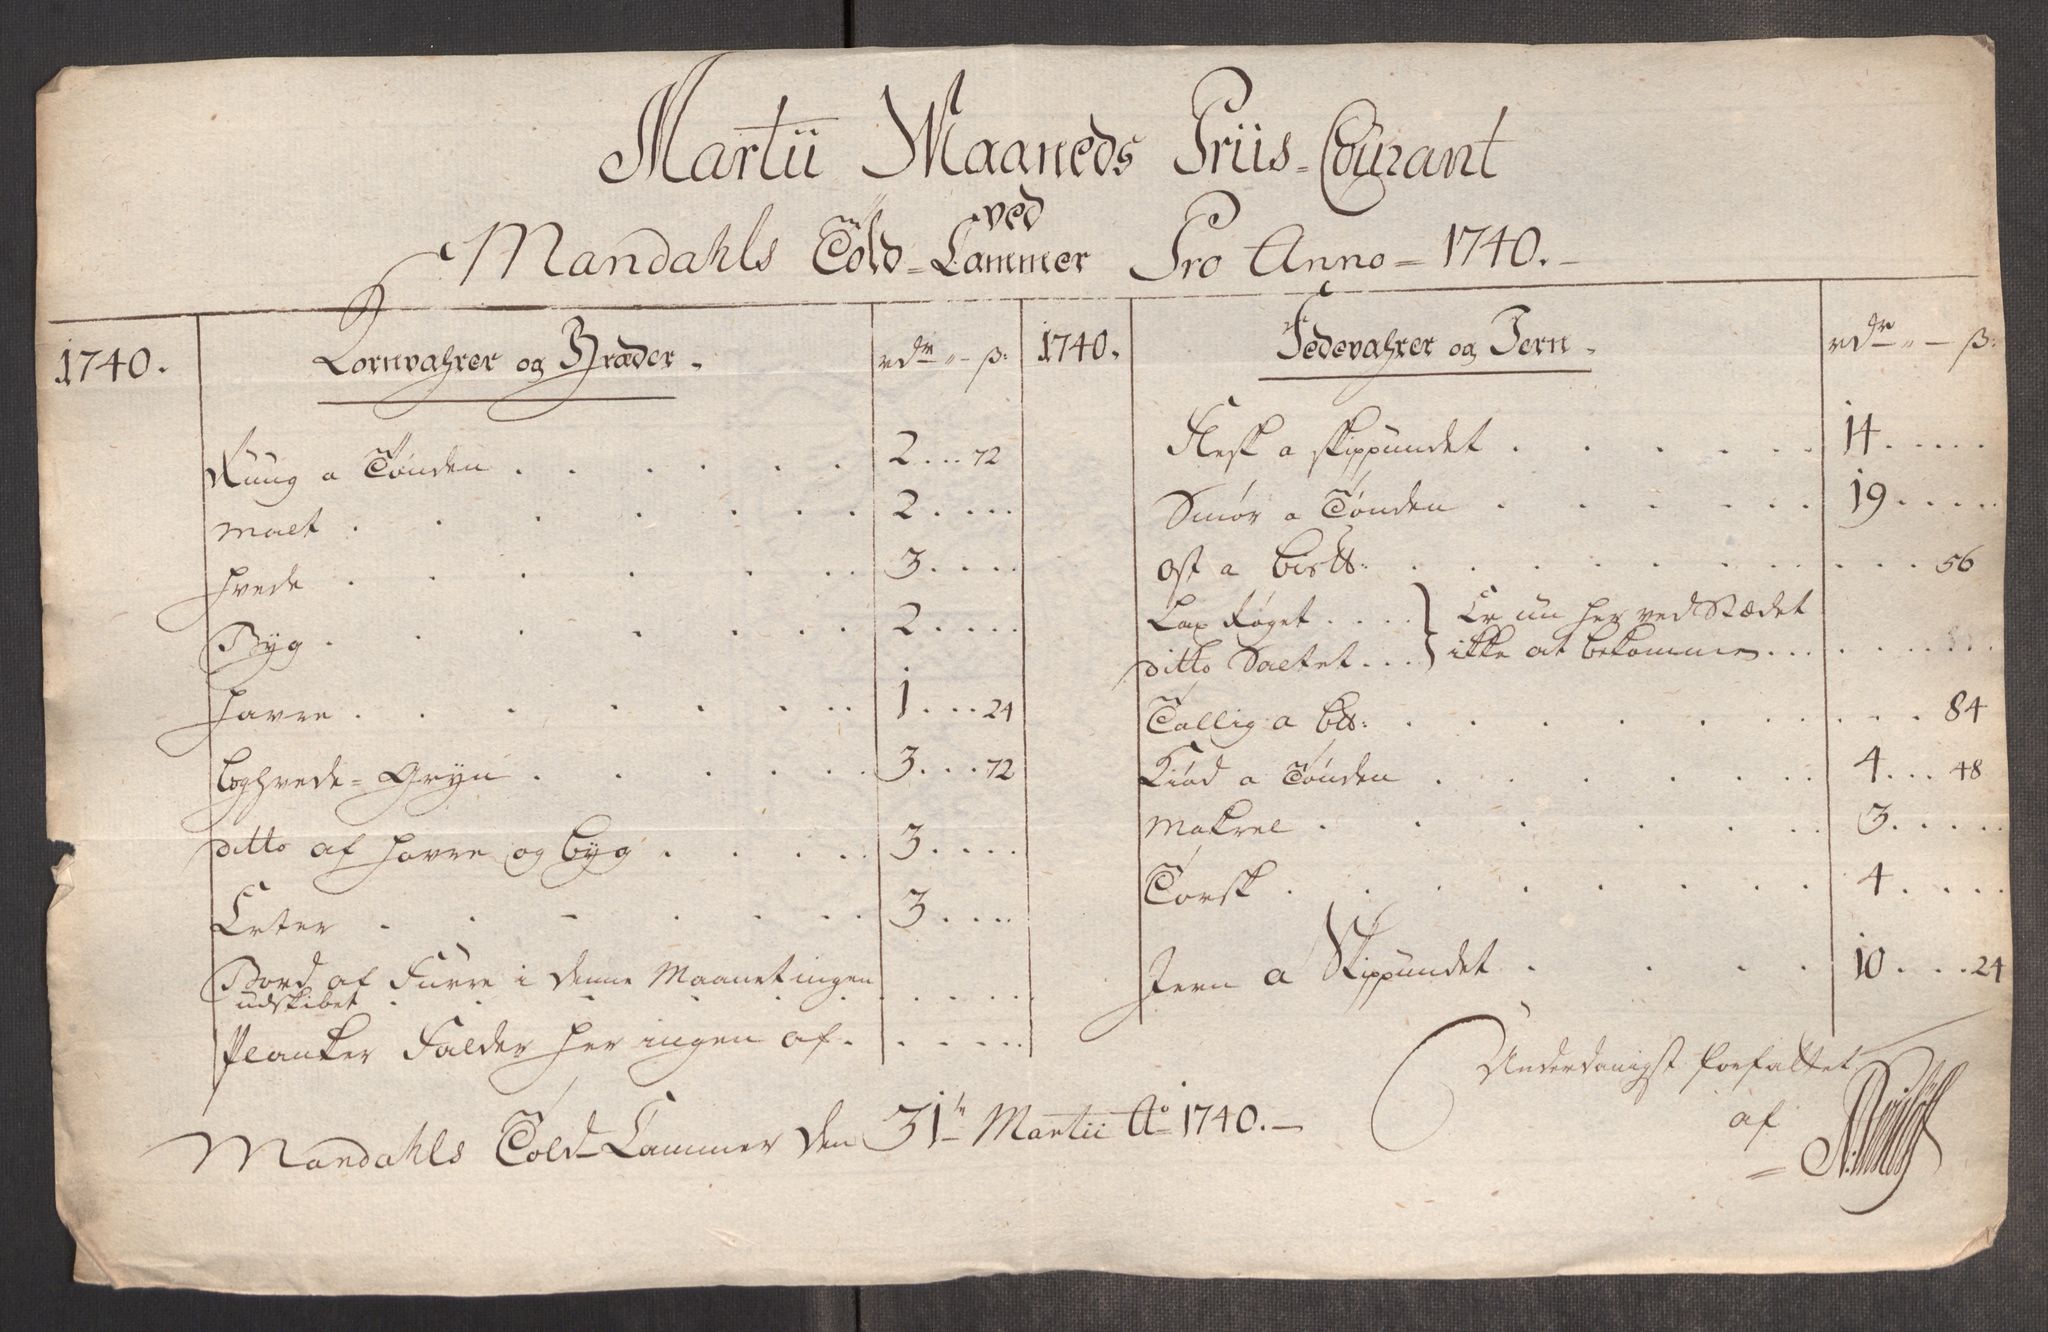 Martii Maaneds Priis-Courant
ved
Mandahls Told-Cammer Pro Anno-1740.-
1740.
Kornvahrer og Bræder.
rdr - ß:
Ruug a Tønden 2 72
Malt 2
Hvede 3
Byg 2
Havre 1 24
boghvede-Gryn 3 72
ditto af Havre og byg 3
Erter 3
Bord af Furre i denne Maanet ingen
udskibet
Planker Falder her ingen af
1740.
Fedevahrer og Jern
rdr - ß:
Flesk a skippundet 14
Smør a Tønden 19
Ost a 56
Lax Røget } Er nu her ved Stædet
ditto Saltet } ikke at bekomme
Tallig a 84
Kiød a Tønden 4 48
Makrel 3
Torsk 4
Jern a Skippundet 10 24
Underdanigst forfattet
af
Mandahls Told-Cammer den 31te Martii Ao 1740.-